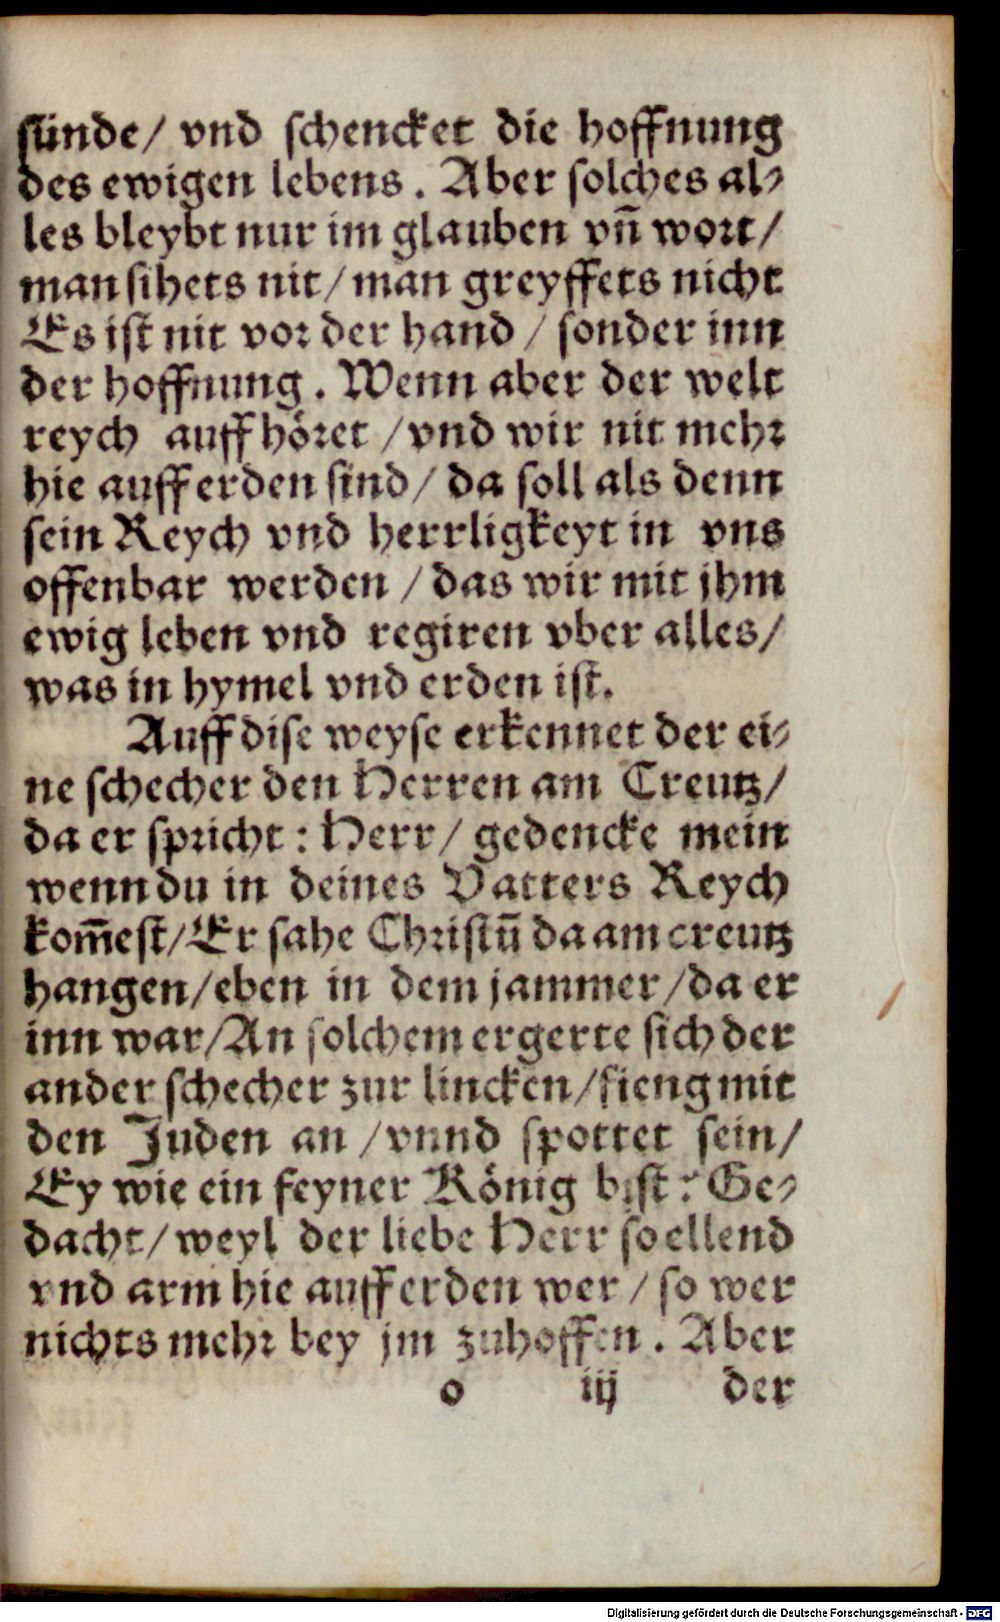 sünde/ vnd schencket die hoffnung
des ewigen lebens. Aber solches al⸗
les bleybt nur im glauben vñ wort/
man sihets nit/ man greyffets nicht
Es ist nit vor der hand / sonder inn
der hoffnung. Wenn aber der welt
reych auffhöret /vnd wir nit mehr
hie auff erden sind/ da soll als denn
sein Reych vnd herrligkeyt in vns
offenbar werden / das wir mit jhm
ewig leben vnd regiren vber alles/
was in hymel vnd erden ist.
Auff dise weyse erkennet der ei⸗
ne schecher den Herren am Creutz/
da er spricht: Herr/ gedencke mein
wenn du in deines Vatters Reych
kom̃est/Er sahe Christũ da am creutz
hangen/eben in dem jammer/da er
inn war/An solchem ergerte sich der
ander schecher zur lincken/fieng mit
den Juden an /vnnd spottet sein/
Ey wie ein feyner König bist: Ge⸗
dacht/ weyl der liebe Herr so ellend
vnd arm hie auff erden wer / so wer
nichts mehr bey jm zuhoffen. Aber
o iij der
Digitalisierung gefördert durch die Deutsche Forschungsgemeinschaft - DFG